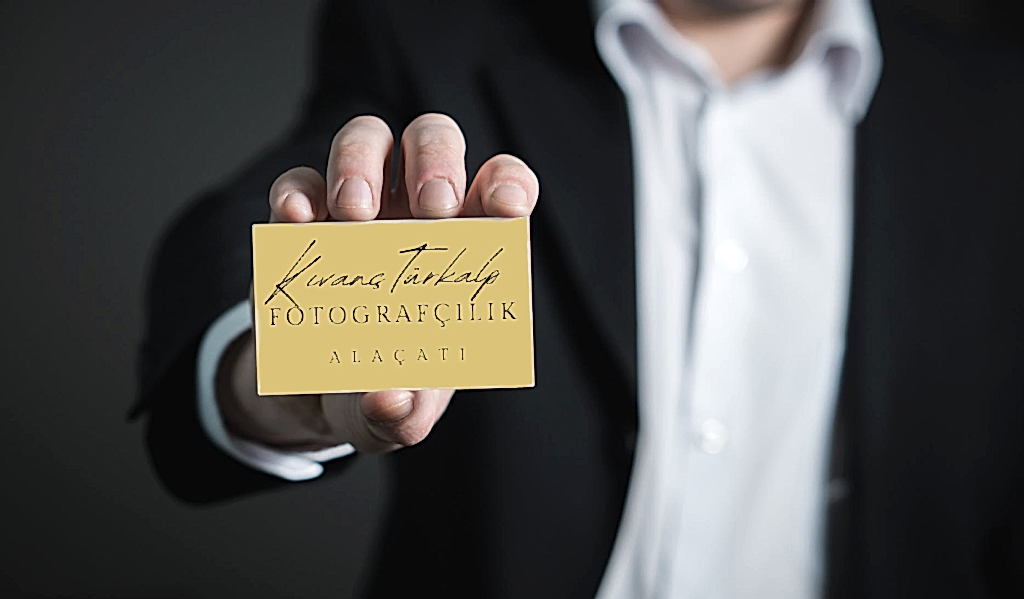 Kıvanç Türkalp
FOTOGRAFÇILIK
ALAÇATI